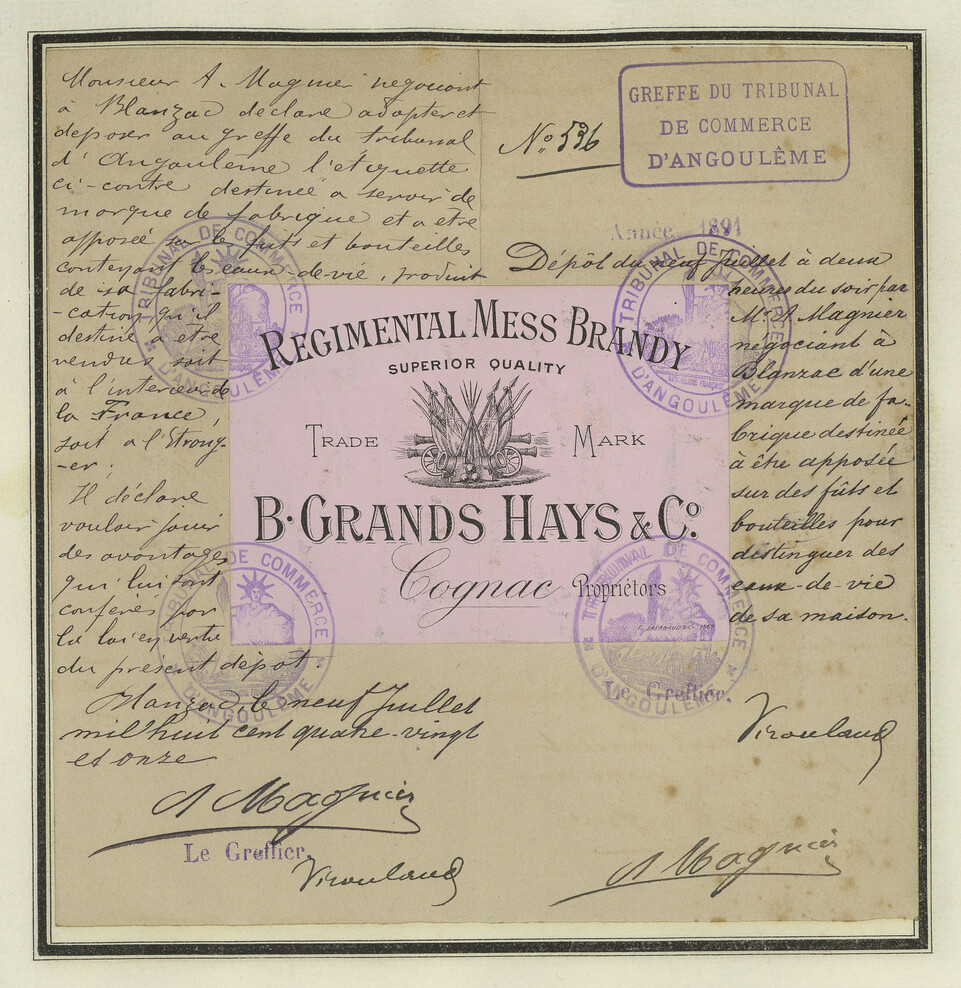 Monsieur A. Magnier negociant
à Blanzac déclare adopter et
déposer au greffe du tribunal
d'Angoulême l'etiquette
ci-contre destinée a servir de
marque de fabrique et a etre
apposée sur les futs et bouteilles
contenant les eaux-de-vie, produit
de sa fabri-
-cation qu'il
destine a etre
vendus soit
à l'interieur de
la France
soit a l'Etrang-
-er.
Il déclare
vouloir jouir
des avantages
qui lui sont
conférés par
la loi en vertu
du present dépot.
Blanzac, le neuf Juillet
mil huit cent quatre-vingt
et onze
A Magnier
Le Greffier,
Virouland
No 536
GREFFE DU TRIBUNAL
DE COMMERCE
D'ANGOULÊME
Année 1891
Dépôt du neuf Juillet à deux
heures du soir par
Mr A Magnier
négociant à
Blanzac d'une
marque de fa-
brique destinée
à être apposée
sur des fûts et
bouteilles pour
distinguer des
eaux-de-vie
de sa maison.
Le Greffier,
Virouland
A Magnier
REGIMENTAL MESS BRANDY
SUPERIOR QUALITY
TRADE MARK
B. GRANDS HAYS & Co.
Cognac Propriétors
TRIBUNAL DE COMMERCE
D'ANGOULÊME
TRIBUNAL DE COMMERCE
D'ANGOULÊME
TRIBUNAL DE COMMERCE
D'ANGOULÊME
TRIBUNAL DE COMMERCE
D'ANGOULÊME